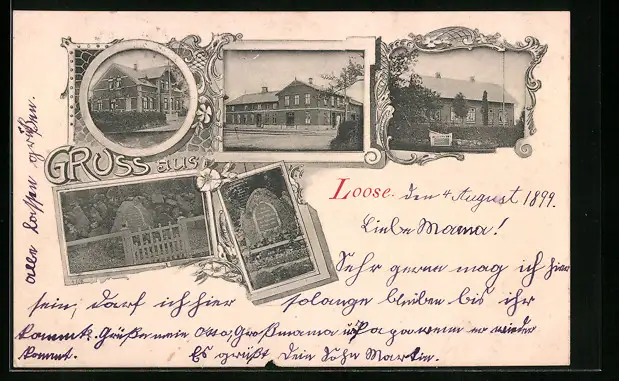 GRUSS aus
Loose. den 4 August 1899.
Liebe Mama!
Sehr gerne mag ich hier
sein, darf ich hier solange bleiben bis ihr
kommt. Grüße mein Otto, Großmama u Papa wenn er wieder
kommt. Es grüßt Dein Sohn Martin.
alle lassen grüßen.